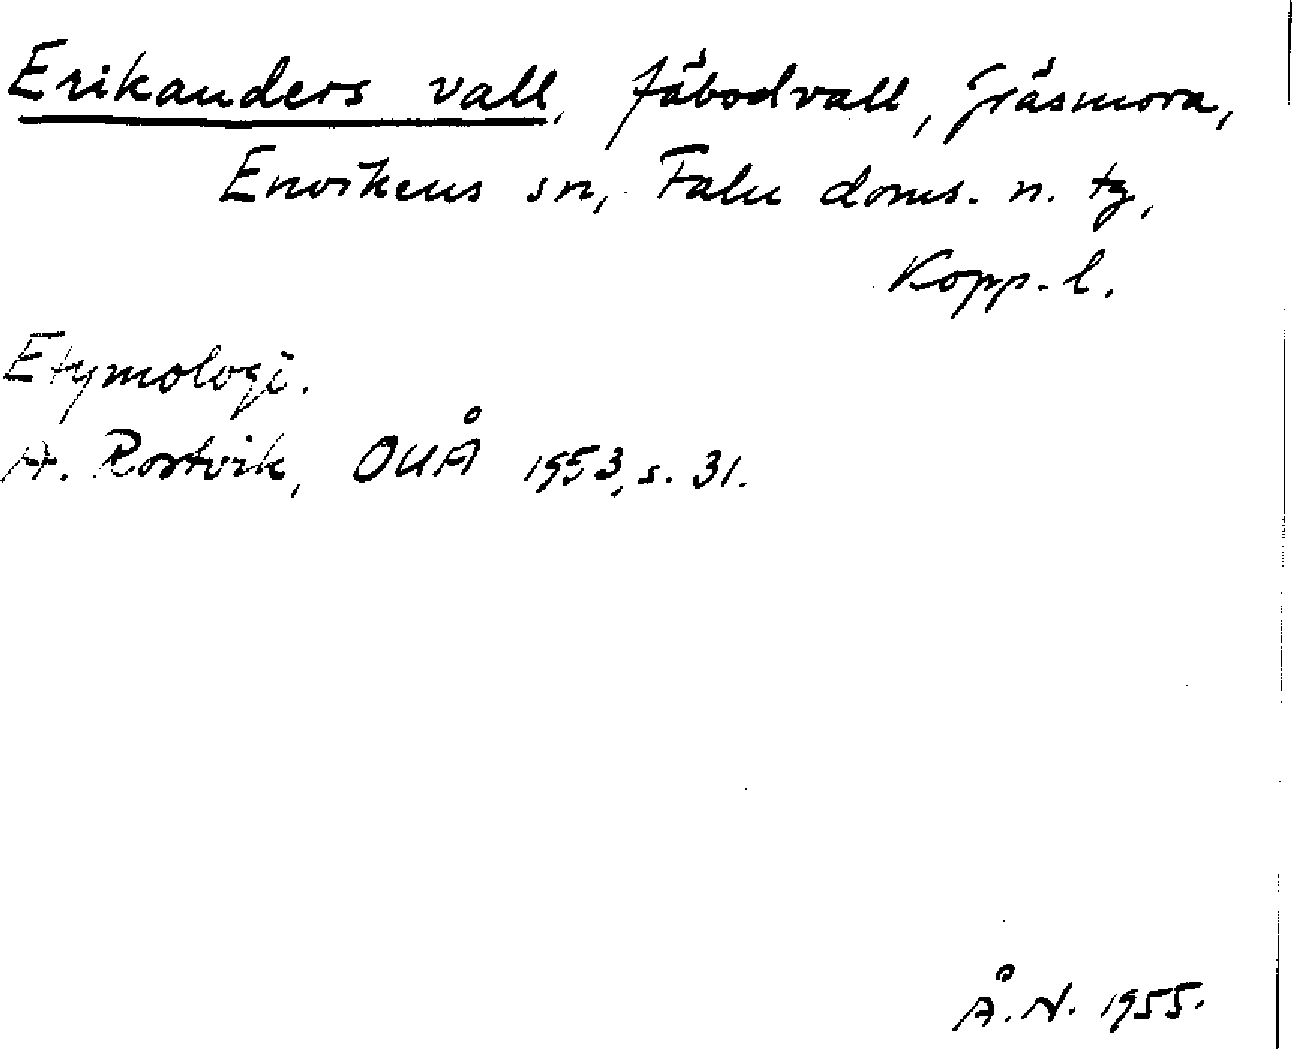 Erikanders vall, fäbodvall, Gräsmora,
Envikens sn, Falu doms. n. tg,
Kopp. l.
Etymologi.
A. Rostvik, OUÅ 1953, s. 31.
Å. N. 1955.